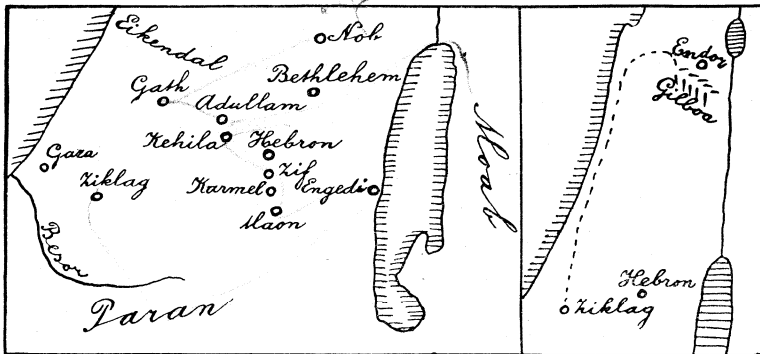 Eikendal
Nob
Gath
Bethlehem
Adullam
Kehila
Hebron
Gaza
Zif
Ziklag
Karmel
Engedi
Maon
Moab
Besor
Paran
Endor
Gilboa
Hebron
Ziklag